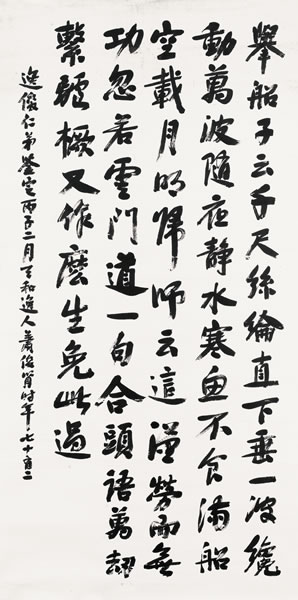 舉船子云千尺絲綸直下垂一波纔
動萬波隨夜静水寒魚不食滿船
空載月明歸師云這漢勞而無
功忽若雲門道一句合頭語萬劫
繫驢橛又作麼生免此過
逸儂仁弟鑒定丙子二月天和逸人蕭俊賢時年七十有二